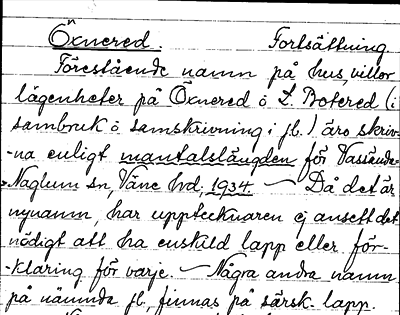 Öxnered. Fortsättning
Förestående namn på hus, villor
lägenheter på Öxnered o L. Botered (i
sambruk o samskrivning i jb.) äro skriv-
-na enligt mantalslängden för Vassända-
-Naglum sn, Väne hd, 1934 — Då det är
nynamn, har uppteckn​aren ej ansett det
nödigt att ha enskild lapp eller för-
-klaring för varje. — Några andra namn
på nämnda jb, finnas på särsk. lapp.